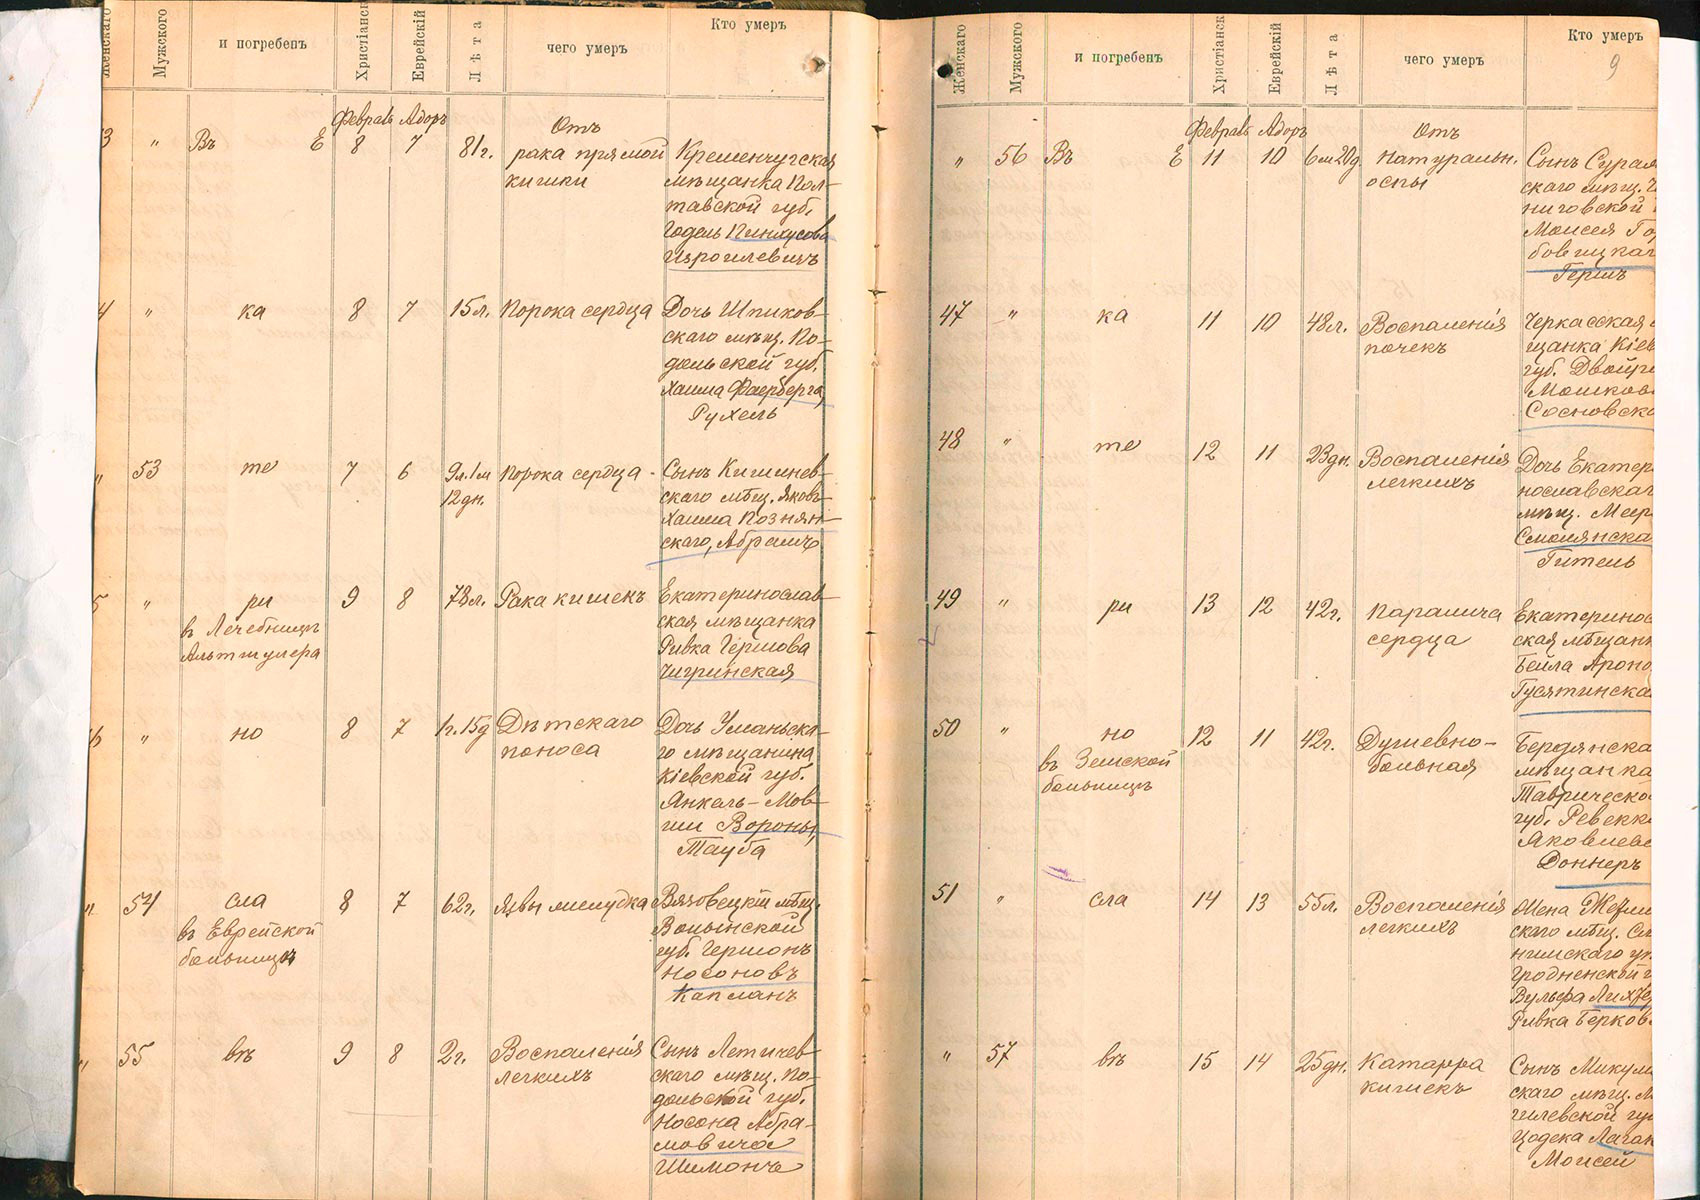 Женскаго
Мужского
и погребенъ
Христіанск
Еврейскій
Лѣта
чего умеръ
Кто умеръ
Февраль Адоръ
3 " Въ Е 8 7 81г.
Отъ
рака прямой
кишки
Кременчугская
мѣщанка Пол-
тавской губ.
Годель Пинхусова
Изроилевичъ
4 " ка 8 7 15л. Порока сердца
Дочь Шпиков-
скаго мѣщ. По-
дольской губ.
Хаима Фаерберга,
Рухель
" 53 те 7 6 9л.1м
12дн.
Порока сердца -
Сынъ Кишинев-
скаго мѣщ. Янкеля-
Хаима Познян-
скаго, Абрамъ
5 " ри 9 8 78л. Рака кишекъ
въ Лечебницѣ
Альтшулера
Екатеринослав-
ская мѣщанка
Ривка Гершова
Чигринская
6 " но 8 7 1г.15д Дѣтскаго
поноса
Дочь Уманьска-
го мѣщанина
Кіевской губ.
Янкель-Мов-
ши Вороны,
Тауба
" 54 сла 8 7 62г. Язвы желудка
въ Еврейской
больницѣ
Вязовецкій мѣщ.
Волынской
губ. Гершонъ
Носоновъ
Капланъ
" 55 въ 9 8 2г. Воспаленія
легкихъ
Сынъ Летичев-
скаго мѣщ. По-
дольской губ.
Носона Абра-
мовича
Шимонъ
Женскаго
Мужского
и погребенъ
Христіанск
Еврейскій
Лѣта
чего умеръ
Кто умеръ
9
Февраль Адоръ
" 56 Въ Е 11 10 6м20д.
Отъ
натуральн.
оспы
Сынъ Сураж
скаго мѣщ. Че
ниговской
Моисея Го
бовицкаг
Гершъ
47 " ка 11 10 48л. Воспаленія
почекъ
Черкасская м
щанка Кіев
губ. Двойр
Мошков
Сосновска
48 " те 12 11 23дн. Воспаленія
легкихъ
Дочь Екатери
нославскаг
мѣщ. Меер
Смолянска
Гитель
49 " ри 13 12 42г. Паралича
сердца
Екатеринос
ская мѣщанк
Бейла Ароно
Гусятинска
50 " но 12 11 42г. Душевно-
больная
въ Земской
больницѣ
Бердянска
мѣщанка
Таврическо
губ. Ревекк
Яковлев
Доннеръ
51 " сла 14 13 55л. Воспаленія
легкихъ
Жена
скаго мѣщ. Сло
нимскаго у
Гродненской г
Вульфа
Ривка Берков
" 57 въ 15 14 25дн. Катарра
кишекъ
Сынъ Микули
скаго мѣщ. М
гилевской гу
Цодека Лаган
Моисей